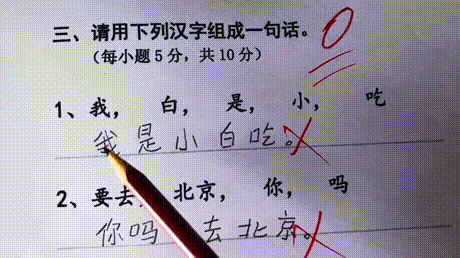 三、请用下列汉字组成一句话。
（每小题5分，共10分）
0
1、我， 白， 是， 小， 吃
我是小白吃。
2、要去， 北京， 你， 吗
你吗 去北京。